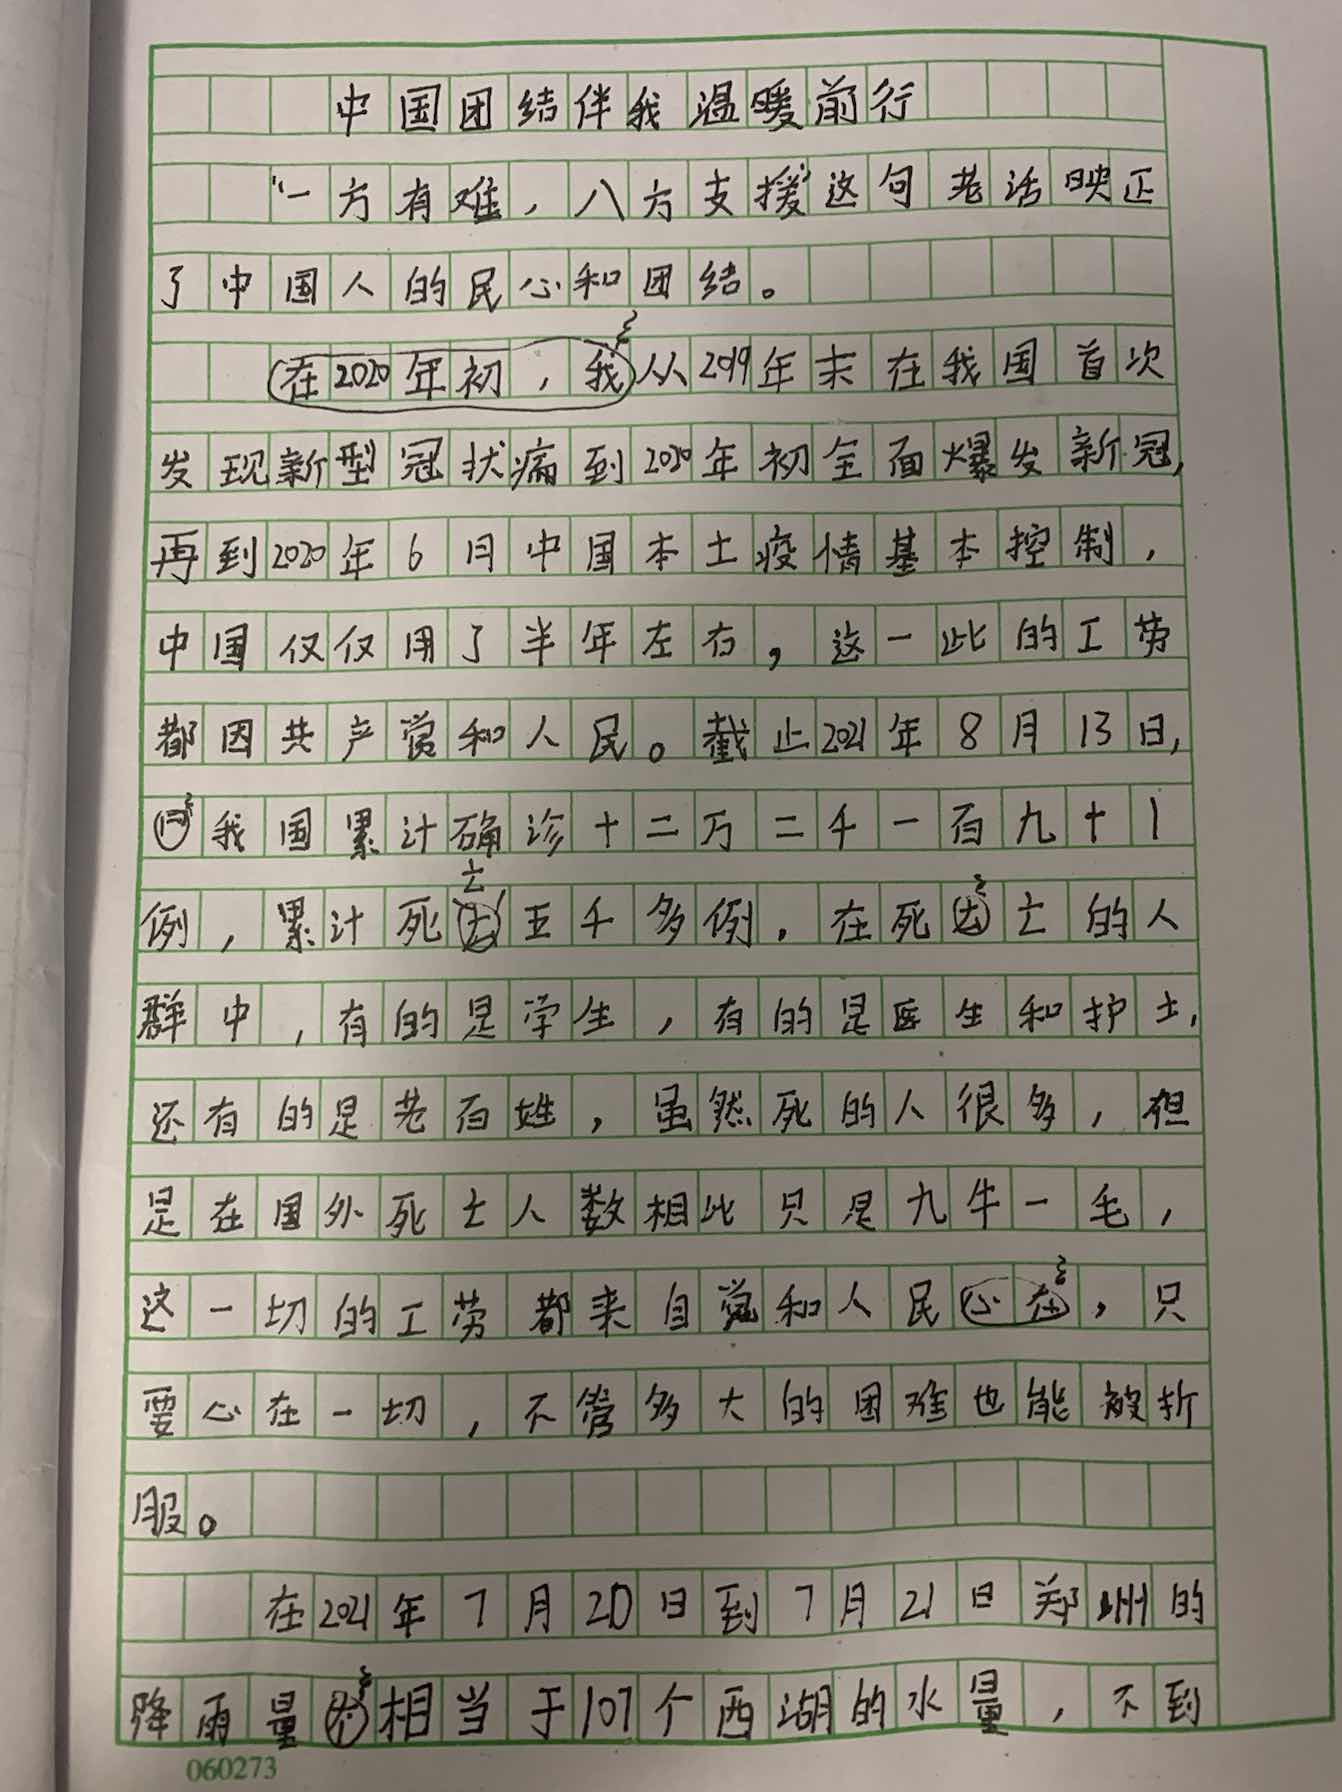 中国团结伴我温暖前行
“一方有难，八方支援”这句老话映正
了中国人的民心和团结。
在2020年初，我从2019年末在我国首次
发现新型冠状病到2020年初全面爆发新冠，
再到2020年6月中国本土疫情基本控制，
中国仅仅用了半年左右，这一此的工劳
都因共产党和人民。截止2021年8月13日，
我国累计确诊十二万二千一百九十
例，累计死亡五千多例。在死亡的人
群中，有的是学生，有的是医生和护士，
还有的是老百姓，虽然死的人很多，但
是在国外死亡人数相比只是九牛一毛，
这一切的工劳都来自党和人民心在，只
要心在一切，不管多大的困难也能被折
服。
在2021年7月20日到7月21日郑州的
降雨量相当于107个西湖的水量，不到
060273